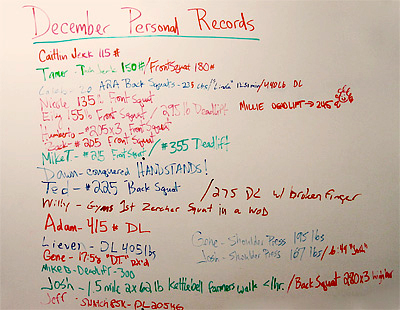 December Personal Records
Caitlin Jerk 115 #
Jerk 150#/Front Squat 180#
Back Squats - 235 lbs/"Linda" DL
Nicole 135 lb Front Squat
Erin 155 lb Front Squat / 295 lb Deadlift MILLIE DEADLIFT → 245
Humberto - #205x3 Front Squat
Zack - # 205 Front Squat
Mike T - # 215 Front Squat / # 355 Deadlift
Dawn - conquered HANDSTANDS!
Ted - # 225 Back Squat / 275 DL w/ broken finger
Willy - Gyms 1st Zercher Squat in a WOD
Adam - 415 # DL
Lieven - DL 405 lbs Gene - Shoulder Press 195 lbs
Gene - 17:58 "DT" Rx'd Josh - Shoulder Press 167 lbs / 6:44
Mike D - Deadlift - 300
Josh - 1.5 mile 2x62 lb Kettlebell farmers walk < 1hr. / Back Squat 280x3 high bar
Jeff